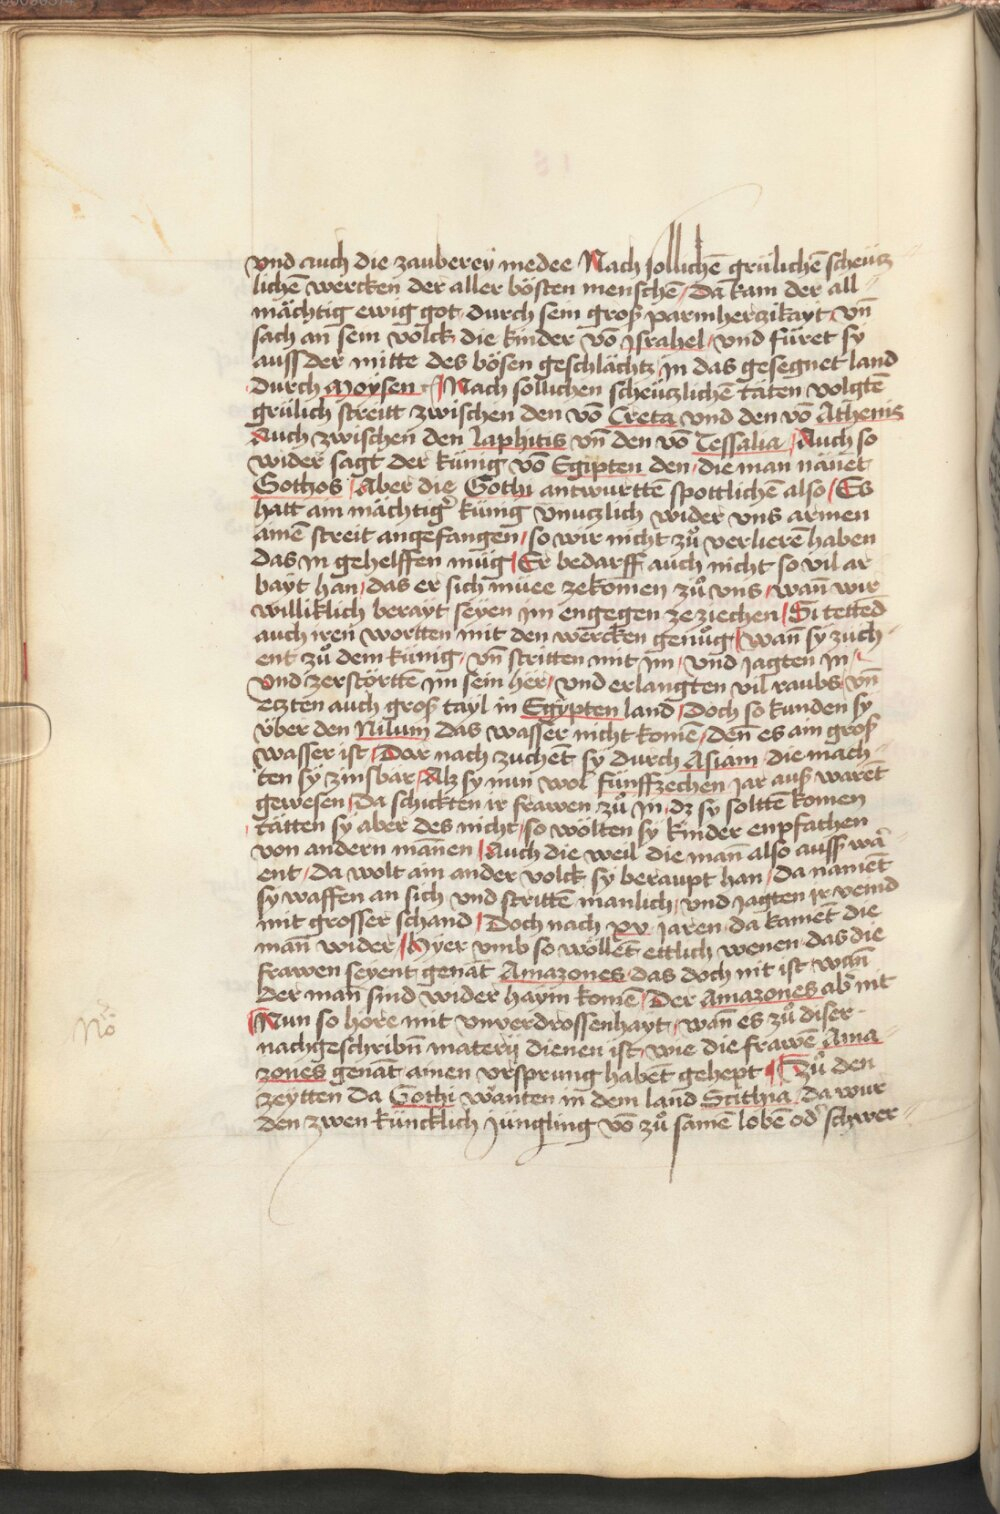 vnd auch die zauberey medee Nach sollichē grülichē scheücz
lichē wercken der aller bösten menschē / Da kam der all
mächtig ewig got / durch sein groß parmherczikayt / vn̄
sach an sein volck / die kinder vō jsrahel / vnd füret sy
auss der mitte des bösen geschlächtz jn das gesegnet land
durch Moysen / Nach sollichen scheüczlichē täten volgtē
grülich streitt zwischen den vō Creta vnd den vō Athenis
Auch zwischen den Laphitis vn̄ den vō Tessalia / Auch so
wider sagt der künig vō Egipten den / die man nänet
Gothos / Aber die Gothi antwurttē spottlichē also / Es
hatt am mächtig künig vnuczlich wider vns armen
ainē streit angefangen / so wir nicht zů verlierē haben
das jn gehelffen müg / Er bedarff auch nicht so vil ar
bayt han / das er sich müee zekomen zů vns / wan̄ wir
williklich berayt seyen jm engegen ze ziechen / Si tetted
auch jren wortten mit den wercken genůg / wan̄ sy zuch
ent zů dem künig / vn̄ stritten mit jm / vnd jagten jn /
vnd zerstörttē jm sein her / vnd erlangten vil raubs vn̄
eczten auch groß tayl in Egypten land / Doch so kunden sy
über den Nilum das wasser nicht komē / den̄ es ain groß
wasser ist / Dar nach zuchēt sy durch Asiam / die mach
ten sy zinsbar / Alz sy nun wol fünffzechen jar auß warēt
gewesen / Da schickten jr frawen zů jn / dz sy solttē komen
tätten sy aber des nicht / so wölten sy kinder enpfachen
von andern man̄en / Auch die weil die man̄ also auss wā
ent / Da wolt ain ander volck sy beraupt han / Da namēt
sy waffen an sich vnd strittē manlich / vnd jagten jr veind
mit grosser schand / Doch nach xv. jaren / da kamēt die
man̄ wider / Hyer vmb so wöllēt ettlich wenen das die
frawen seyent genāt Amazones / das doch nit ist / wan̄
der man̄ sind wider haym komē / Der Amazones ab nit
Nun so höre mit vnverdrossenhayt / wan̄ es zů diser
nachgeschribn̄ materij dienen ist / wie die frawē Ama
zones genāt ainen vrsprung habēt gehept / Zů den
zeytten da Gothi wånten in dem land Scithia / da wur
den zwen küncklich jüngling vō zů samē lobē od schwer
No